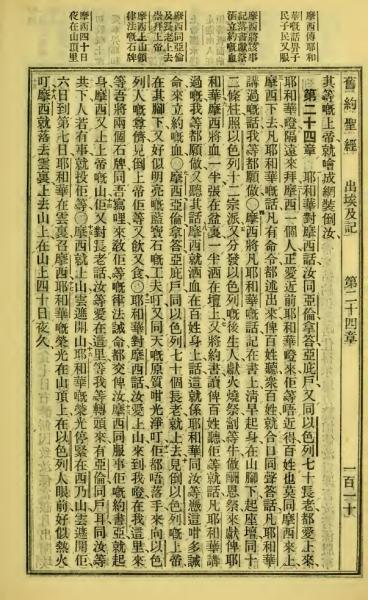 摩西傳耶和
華嘅話畀子
民子民又服
摩西將該事
記落書獻祭
洒立約嘅血
摩西同亞倫
及長老上去
崇拜上帝
摩西上山領
受兩個
律法嘅石牌
摩西四十日
夜在山頂里
舊約聖經 出埃及記 第二十四章 一百二十
其等嘅上帝就噲成網裝倒汝、
第二十四章 耶和華對摩西話汝同亞倫拿答亞庇戶又同以色列七十長老都愛上來、
耶和華嶝隔遠來拜摩西一個人正愛近前耶和華嶝來佢等唔近得百姓也莫同摩西來上
摩西下去凡耶和華嘅話凡有命令都述出來俾百姓聽衆百姓就合口同聲答話凡耶和華
講過嘅話我等都願做○摩西將凡耶和華嘅話記在書上清早起身在山腳下起座壇同十
二條柱照以色列十二宗派又分發以色列嘅後生人獻火燒祭劏等牛做酬恩祭來獻俾耶
和華摩西將血一半張在盆裏一半洒在壇上又將約書讀俾百姓聽佢等就話凡耶和華講
過嘅我等都願做又聽其話摩西就洒血在百姓身上話這就係耶和華同汝等憑這咁多誡
命來立約嘅血○摩西亞倫拿答亞庇戶同以色列七十個長老就上去見倒以色列嘅上帝
在其腳下又好似明亮嘅藍寶石嘅工夫叮又同天嘅原質咁光淨叮佢都唔落手來向以色
列人嘅尊儕見倒上帝佢等又飲又食○耶和華對摩西話汝愛上山來到我嶝在我這里來
等吾將兩個石牌同吾寫哩來敎佢等嘅律法誡命都交俾汝摩西同服事佢嘅約書亞就起
身摩西又上上帝嘅山佢又對長老話汝等愛在這里等我等轉頭來有亞倫同戶耳同汝等
共下人若有事就投佢等○摩西就上山雲遮開山耶和華嘅榮光停緊在西乃山雲遮開佢
六日到第七日耶和華在雲裏召摩西耶和華嘅榮光在山頂上在以色列人眼前好似熱火
叮摩西就落去雲裏上去山上在山上四十日夜久、